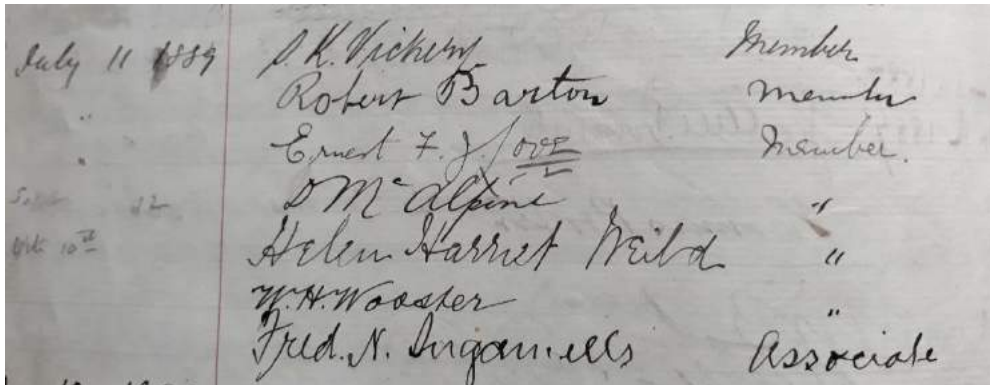 July 11 1889 S. K. Vickery Member
" Robert Barton Member
" Ernest F. J. Love Member.
12 D McAlpine "
Octr 10th Helen Harriet Neild "
W. H. Wooster "
Fred. N. Ingamells Associate